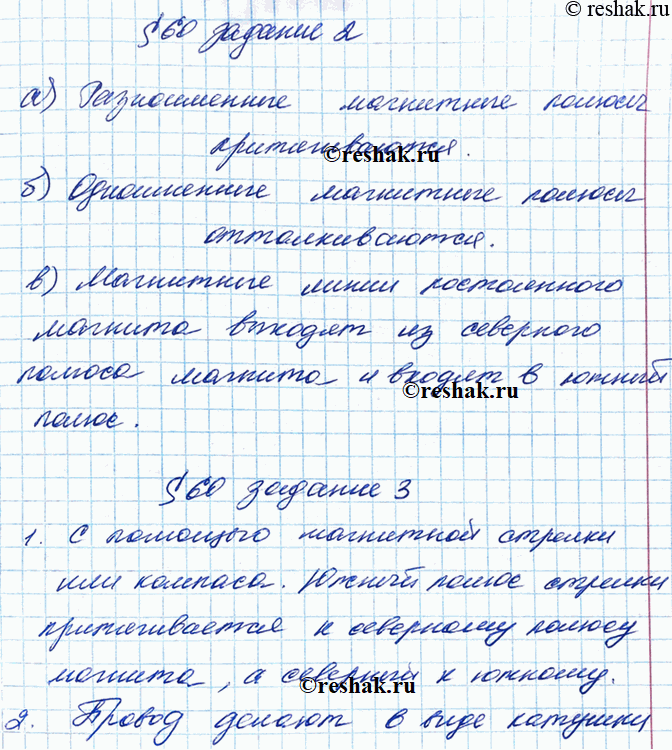 © reshak.ru
§60 задание 2
а) Разноименные магнитные полюсы
притягиваются.
© reshak.ru
б) Одноименные магнитные полюсы
отталкиваются.
в) Магнитные линии постоянного
магнита выходят из северного
полюса магнита и входят в южный
© reshak.ru
полюс.
§60 задание 3
1. С помощью магнитной стрелки
или компаса. Южный полюс стрелки
притягивается к северному полюсу
магнита, а северный к южному.
© reshak.ru
2. Провод делают в виде катушки